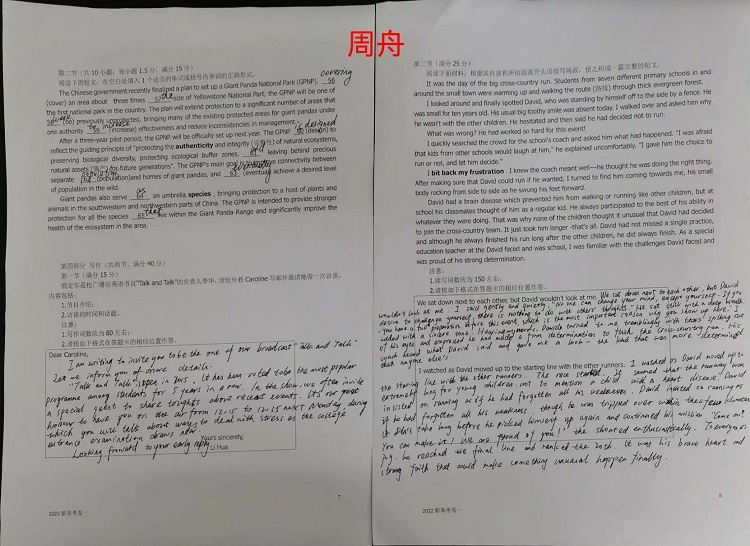 周舟
第二节(共 10 小题;每小题 1.5 分,满分 15 分)
阅读下面短文,在空白处填入 1 个适当的单词或括号内单词的正确形式。
covering
The Chinese government recently finalized a plan to set up a Giant Panda National Park (GPNP), 56
(cover) an area about three times 57 the size of Yellowstone National Park, the GPNP will be one of
the first national park in the country. The plan will extend protection to a significant number of areas that
58 are (be) previously unprotected, bringing many of the existing protected areas for giant pandas under
one authority 59 to increase (increase) effectiveness and reduce inconsistencies in management.
After a three-year pilot period, the GPNP will be officially set up next year. The GPNP 60 is designed (design) to
reflect the guiding principle of "protecting the authenticity and integrity (完整性) of natural ecosystems,
preserving biological diversity, protecting ecological buffer zones, 61 leaving behind precious
natural assets (资产) for future generations". The GPNP's main goal is to improve connectivity between
separate 62 population (population) and homes of giant pandas, and 63 (eventual) achieve a desired level
of population in the wild.
Giant pandas also serve 64 as an umbrella species, bringing protection to a host of plants and
animals in the southwestern and northwestern parts of China. The GPNP is intended to provide stronger
protection for all the species 65 that live within the Giant Panda Range and significantly improve the
health of the ecosystem in the area.
第四部分 写作(共两节、满分 40 分)
第一节(满分 15 分)
假定你是校广播站英语节目"Talk and Talk"的负责人李华,请给外教 Caroline 写邮件邀请她做一次访谈。
内容包括:
1.节目介绍;
2.访谈的时间和话题。
注意:
1.写作词数应为 80 左右;
2.请按如下格式在答题卡的相应位置作答。
Dear Caroline,
I am writing to invite you to be the one of our broadcast "Talk and Talk".
Let me inform you of more details.
"Talk and Talk" open in 2015. It has been voted told the most popular
programme among students for 5 years in a row. In the show, we often invite
a special guest to share thoughts about recent events. It's our great
honour to have you on the air from 12:15 to 12:25 next Monday, during
which you will talk about ways to deal with stress as the college
entrance examination draws near.
Looking forward to your early reply.
Yours sincerely,
Li Hua
7
2022 新高考卷一
第二节(满分 25 分)
阅读下面材料,根据其内容和所给段落开头语续写两段,使之构成一篇完整的短文。
It was the day of the big cross-country run. Students from seven different primary schools in and
around the small town were warming up and walking the route (路线) through thick evergreen forest.
I looked around and finally spotted David, who was standing by himself off to the side by a fence. He
was small for ten years old. His usual big toothy smile was absent today. I walked over and asked him why
he wasn't with the other children. He hesitated and then said he had decided not to run.
What was wrong? He had worked so hard for this event!
I quickly searched the crowd for the school's coach and asked him what had happened. "I was afraid
that kids from other schools would laugh at him," he explained uncomfortably. "I gave him the choice to
run or not, and let him decide."
I bit back my frustration. I knew the coach meant well—he thought he was doing the right thing.
After making sure that David could run if he wanted, I turned to find him coming towards me, his small
body rocking from side to side as he swung his feet forward.
David had a brain disease which prevented him from walking or running like other children, but at
school his classmates thought of him as a regular kid. He always participated to the best of his ability in
whatever they were doing. That was why none of the children thought it unusual that David had decided
to join the cross-country team. It just took him longer -that's all. David had not missed a single practice,
and although he always finished his run long after the other children, he did always finish. As a special
education teacher at the David faced and was school, I was familiar with the challenges David faced and
was proud of his strong determination.
注意:
1.续写词数应为 150 左右;
2.请按如下格式在答题卡的相应位置作答。
We sat down next to each other, but David wouldn't look at me. We sat down next to each other, but David
wouldn't look at me. I said gently and quietly, "No one can change your mind, except yourself. If you
desire to challenge yourself, there is nothing to do with others' thoughts." He sat still with a deep breath
"You have a full preparation before this event, which is the most important reason why you show up here. I
added with a sincere tone. David turned to me tremblingly with tears spilling out
of his eyes and expressed he had made a firm determination to finish the cross-country run. His
coach heard what David said and gave me a look — the look that was more determined
than anyone else's.
I watched as David moved up to the starting line with the other runners. I watched as David moved up to
the starting line with the other runners. The race started. It seemed that the runway was
extremely long for young children, not to mention a child with a heart disease. David
insisted on running as if he had forgotten all his weakness. David insisted on running as
if he had forgotten all his weakness, though he was tripped over within the few kilometers
It didn't take long before he picked himself up again and continued his mission. "Come on!
You can make it! We are proud of you!", the shouted enthusiastically. To everyone's
joy, he reached the final line and ranked the 20th. It was his brave heart and
strong faith that could make something unusual happen finally.
8
2022 新高考卷一